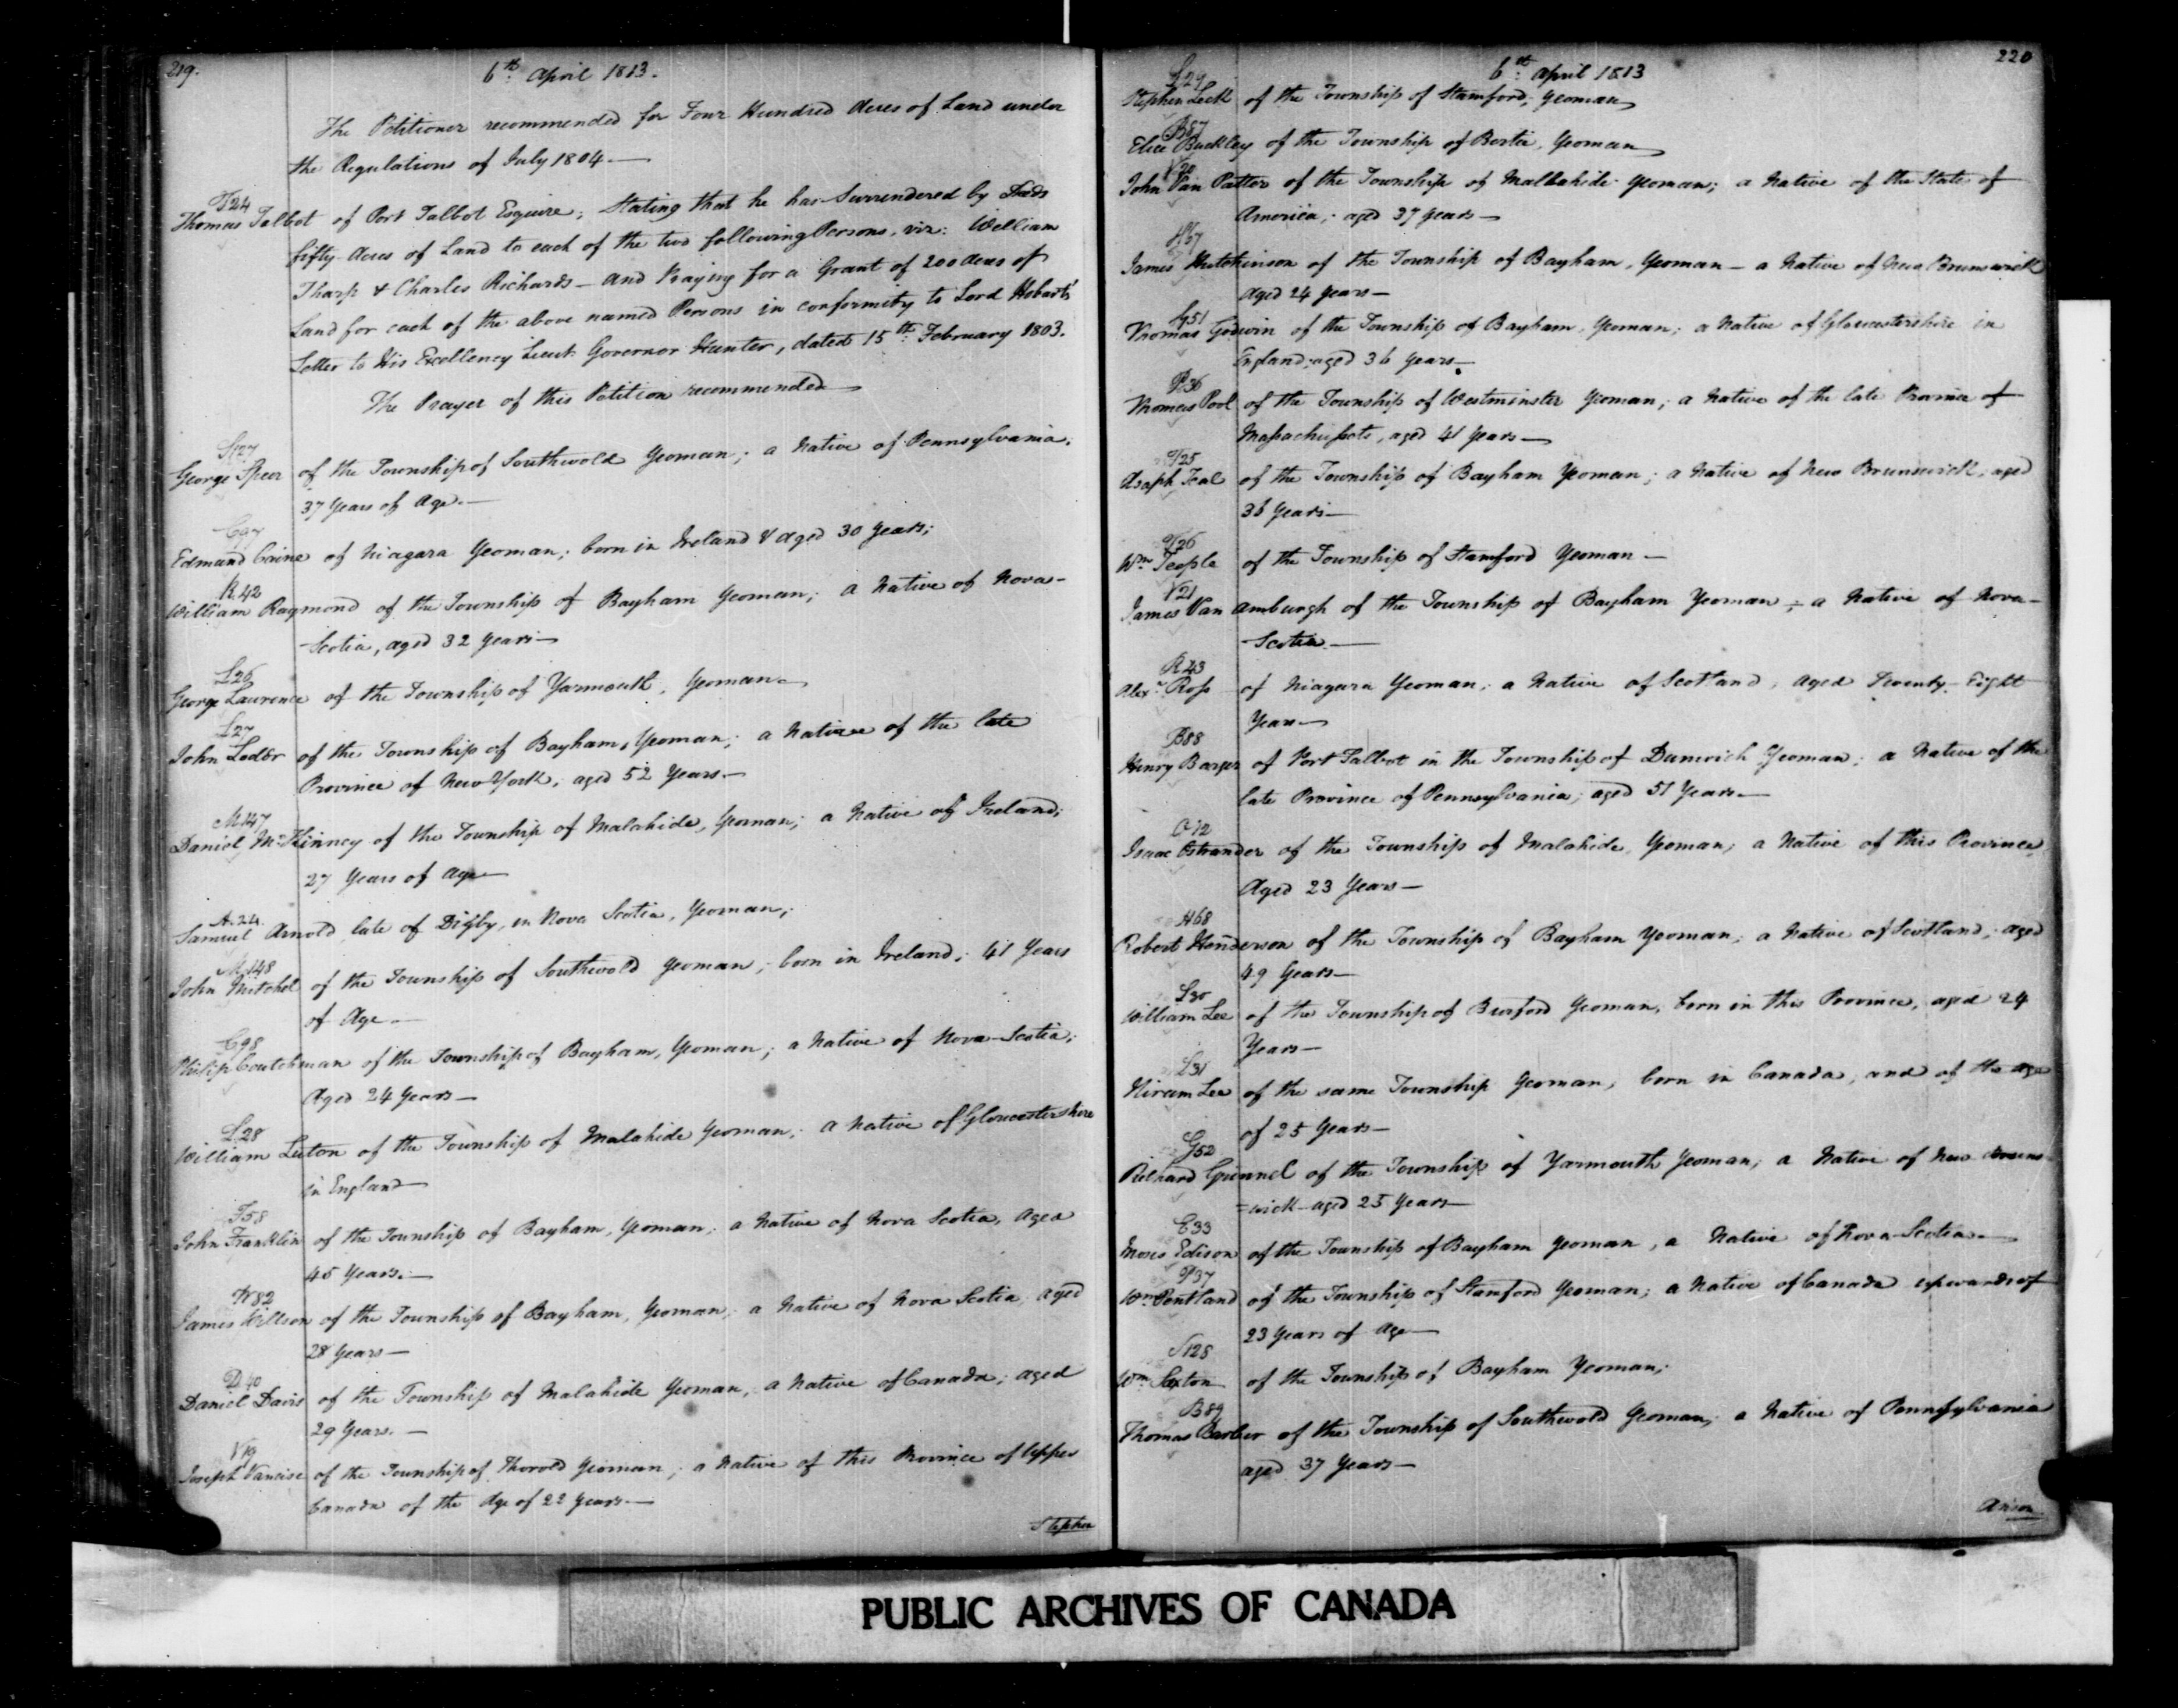 219.
6th April 1813.
The Petitioner recommended for Four Hundred Acres of Land under
the Regulations of July 1804.—
T24
Thomas Talbot of Port Talbot Esquire; Stating that he has Surrendered by Deeds
fifty Acres of Land to each of the two following Persons, viz: William
Tharp & Charles Richards — and Praying for a Grant of 200 Acres of
Land for each of the above named Persons in conformity to Lord Hobart's
Letter to His Excellency Lieut. Governor Hunter, dated 15th February 1803.
The Prayer of this Petition recommended—
S127
George Speer of the Township of Southwold Yeoman; a Native of Pennsylvania;
37 Years of Age.—
C97
Edmund Caine of Niagara Yeoman; born in Ireland & aged 30 Years;
R42
William Raymond of the Township of Bayham Yeoman; a Native of Nova-
Scotia, aged 32 Years—
L26
George Lawrence of the Township of Yarmouth, Yeoman—
L27
John Loder of the Township of Bayham, Yeoman; a Native of the late
Province of New York; aged 52 Years.—
M147
Daniel McKinney of the Township of Malahide, Yeoman; a Native of Ireland;
27 Years of Age—
A.24.
Samuel Arnold late of Digby, in Nova Scotia, Yeoman;
M148
John Mitchel of the Township of Southwold Yeoman; born in Ireland; 41 Years
of Age—
C98
Philip Coutchman of the Township of Bayham, Yeoman; a Native of Nova-Scotia;
Aged 24 Years—
L28
William Luton of the Township of Malahide Yeoman; a Native of Gloucestershire
in England—
F58
John Franklin of the Township of Bayham, Yeoman; a Native of Nova Scotia, Aged
45 Years.—
W82
James Willson of the Township of Bayham, Yeoman; a Native of Nova Scotia aged
28 Years—
D40
Daniel Davis of the Township of Malahide Yeoman; a Native of Canada; aged
29 Years.—
V19
Joseph Vancise of the Township of Thorold Yeoman; a Native of this Province of Upper
Canada of the Age of 22 Years.—
Stephen
220
6th April 1813
L29
Stephen Leek of the Township of Stamford; Yeoman
B87
Elice Buckley of the Township of Bertie, Yeoman
V20
John Van Patter of the Township of Mallahide Yeoman; a Native of the State of
America; aged 37 Years—
H67
James Hutchinson of the Township of Bayham, Yeoman — a Native of New Brunswick
Aged 24 Years—
G51
Thomas Godwin of the Township of Bayham, Yeoman; a Native of Gloucestershire in
England; aged 36 Years—
P36
Thomas Pool of the Township of Westminster Yeoman; a Native of the late Province of
Massachussets, aged 41 Years—
T25
Asaph Teal of the Township of Bayham Yeoman; a Native of New Brunswick, aged
36 Years—
T26
Wm Teeple of the Township of Stamford Yeoman—
V21
James Van amburgh of the Township of Bayham Yeoman; a Native of Nova-
Scotia.—
R43
Alexr Ross of Niagara Yeoman; a Native of Scotland; Aged Twenty-Eight
Years—
B88
Henry Barger of Port Talbot in the Township of Dunwich Yeoman; a Native of the
late Province of Pennsylvania; aged 51 Years—
O12
Isaac Ostrander of the Township of Malahide, Yeoman; a Native of this Province
Aged 23 Years—
H68
Robert Henderson of the Township of Bayham Yeoman; a Native of Scotland; aged
49 Years—
L30
William Lee of the Township of Burford Yeoman, born in this Province, aged 24
Years—
L31
Hiram Lee of the same Township Yeoman, born in Canada; and of the age
of 25 Years—
G52
Richard Grinnel of the Township of Yarmouth Yeoman; a Native of New Bruns-
=wick—aged 25 Years—
E33
Moses Edison of the Township of Bayham Yeoman, a Native of Nova-Scotia—
P37
Wm Pentland of the Township of Stamford Yeoman; a Native of Canada upwards of
23 Years of Age—
S128
Wm Saxton of the Township of Bayham Yeoman;
B89
Thomas Barber of the Township of Southwold Yeoman; a Native of Pennsylvania
aged 37 Years—
PUBLIC ARCHIVES OF CANADA